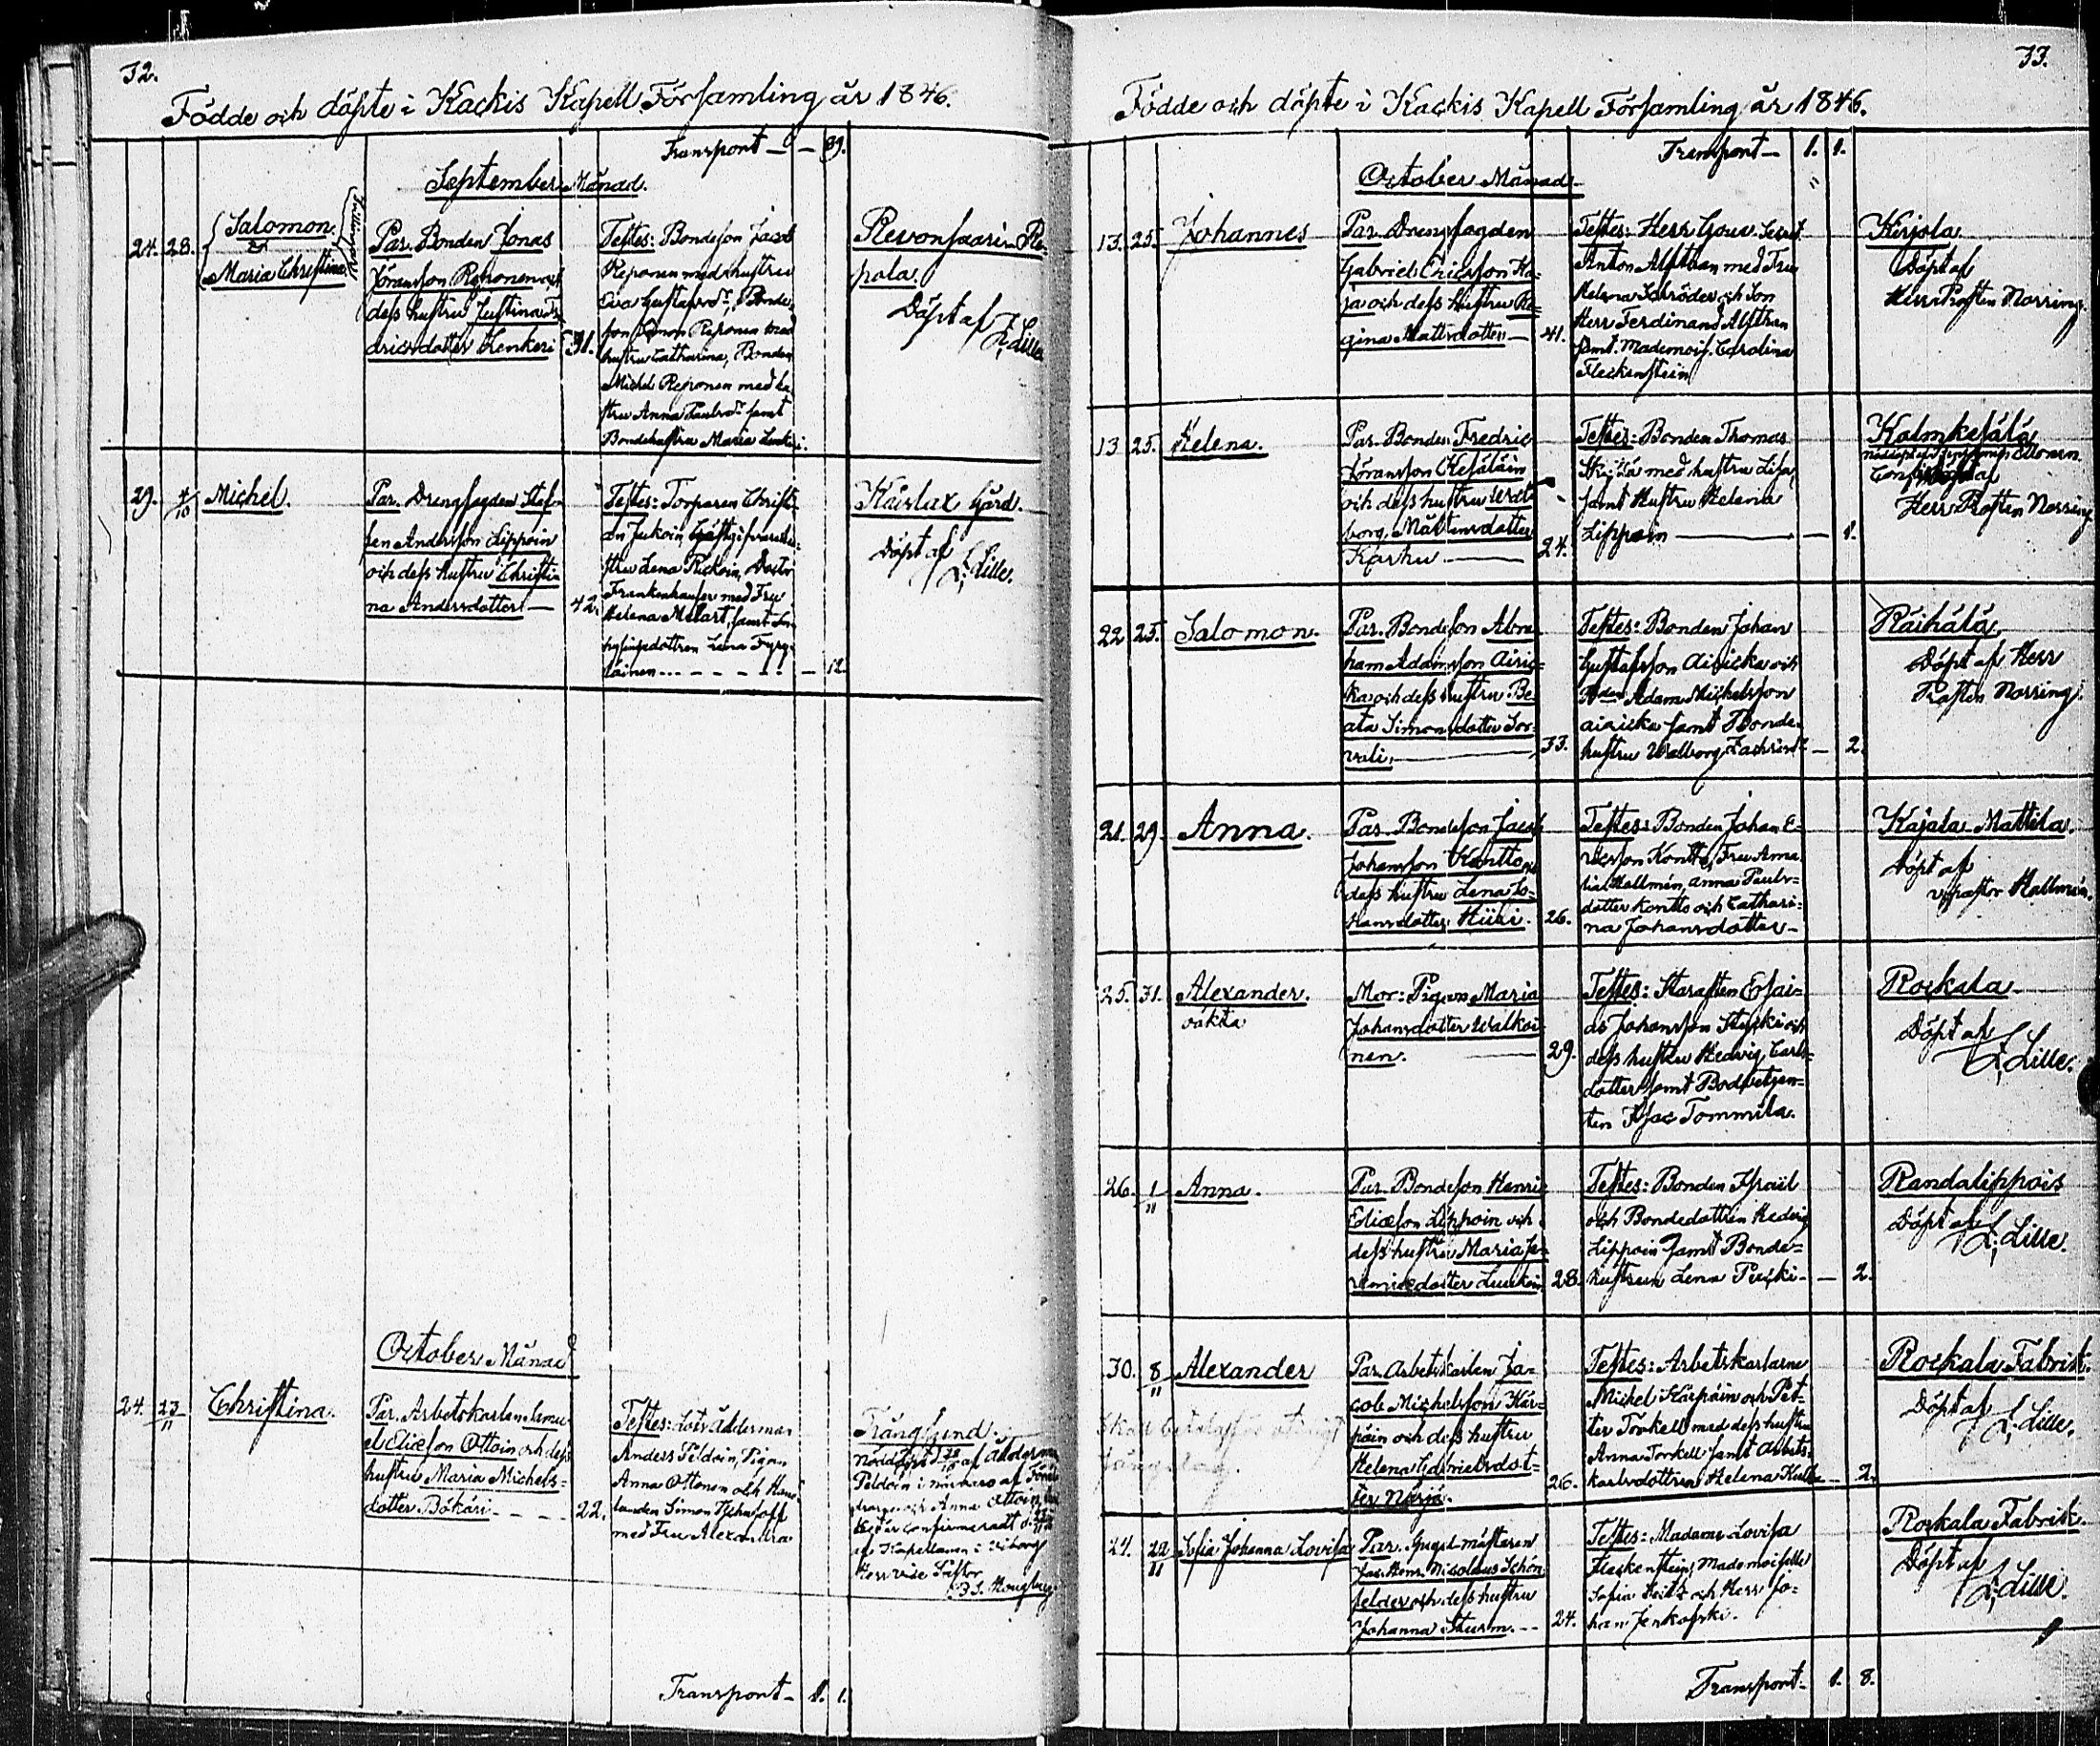 32.
Födde och döpte i Kackis Kapell Församling år 1846.
Transport — 39.
September Månad.
24. 28.
Salomon.
Maria Christina.
Tvillingar
Par. Bonden Jonas
Göransson Reponen och
dess hustru Justina
dricsdotter Kenkeri
31.
Testes: Bondeson Jacob
Reponen med hustru
Eva Gustafsdr, Bonde-
son Simon Reponen med
hustru Catharina, Bonden
Michel Reponen med hu-
stru Anna Paulsdr samt
Bondehustru Maria
Revonsaari
pola.
Döpt af
Lille
29. 4/10
Michel.
Par. Drengfogden Staf-
fen Andersson Lippoin
och dess hustru Christi-
na Andersdotter —
42.
Testes: Torparen Christi-
an Juckoin, Gästgifvarehu-
stru Lena Puckoin, Doctor
Frankenhauser med Fru
Helena Melart, samt In-
hysingsdottren Lena Tyry-
läinen
— 12.
Kaislax Gård.
Döpt af
Lille.
October Månad
24. 23/11
Christina.
Par. Arbetskarlen Samu-
el Eliæson Ottoin och dess
hustru Maria Michels-
dotter Pökäri
22.
Testes: Lotsålderman
Anders Peldoin, Pigan
Anna Ottonen och Han-
landen Simon Tschusoff
med Fru Alexandra
Trångsund.
Nöddöpt af Ålderman
Peldoin i närvaro af
och Anna Ottoin,
confirmeradt d.
af Kapellanen i Viborg
Herr vice Pastor
Transport — 1. 1.
33.
Födde och döpte i Kackis Kapell Församling år 1846.
Transport — 1. 1.
October Månad
13. 25.
Johannes
Par. Drengfogden
Gabriel Ericsson Ka-
ja och dess hustru Re-
gina Mattsdotter —
41.
Testes: Herr Gouv. Secret.
Anton Alfthan med Fru
Helena Schröder och Son
Herr Ferdinand Alfthan
samt Mademois. Carolina
Fleckenstein
Kirjola
Döpt af
Herr Prosten Norring.
13 25.
Helena.
Par. Bonden Fredric
Göransson Kesäläin
och dess hustru Wal-
borg Mårtensdotter
Karhu —
24.
Testes: Bonden Thomas
med hustru Lisa,
samt Hustru Helena
Lippoin — — 1.
Kolmkesälä
Herr Prosten Norring
22 25.
Salomon.
Par. Bondeson Abra-
ham Adamsson Airic-
ka och dess hustru Be-
ata Simonsdotter Sor-
vali. —
33.
Testes: Bonden Johan
Gustafsson Airicka och
Bden Adam Michelsson
airicka samt Bonde-
hustru Walborg Zachrisdr — 2.
Räihälä
Döpt af Herr
Prosten Norring.
21. 29.
Anna.
Par. Bondeson Jacob
Johansson Kontto och
dess hustru Lena Jo-
hansdotter Hüri.
26.
Testes: Bonden Johan E-
ricsson Kontto, Fru Ama-
lia Hallmén, Anna Pauls-
dotter Kontto och Cathari-
na Johansdotter —
Kajala Mattila.
Döpt af
v. pastor Hallmén.
25. 31.
Alexander.
oäkta
Mor: Pigan Maria
Johansdotter Walkoi-
nen. —
29.
Testes: Starosten Esai-
as Johansson Stycki och
dess hustru Hedvig Carls-
dotter samt Bodbetjen-
ten Isac Tommila.
Rockala
Döpt af
L. Lille.
26. 1/11
Anna.
Par. Bondeson Henric
Eliæson Lippoin och
dess hustru Maria Je-
remiædotter Luukoin
28.
Testes: Bonden Israel
och Bondedottren Hedvig
Lippoin samt Bonde-
hustrun Lena Pucki — — 2.
Randalippois
Döpt af
L. Lille.
30. 8/11
Alexander
Par. Arbetskarlen Ja-
cob Michelsson Kär-
päin och dess hustru
Helena Gabrielsdot-
ter Norja.
26.
Testes: Arbetskarlarne
Michel Kärpäin och Pet-
ter Torkell med dess hustru
Anna Torkell samt arbets-
karlsdottren Helena — 2.
Rockala Fabrik.
Döpt af
L. Lille.
24. 22/11
Sofia Johanna Lovisa
Par. Spegel-mästaren
Joh. Henr. Nicolaus Schön-
felder och dess hustru
Johanna Sturm. —
24.
Testes: Madame Lovisa
Fleckenstein, Mademoiselle
Sofia Seitz och Herr Jo-
han Jenkofski.
Rockala Fabrik.
Döpt af
L. Lille.
Transport — 1. 8.